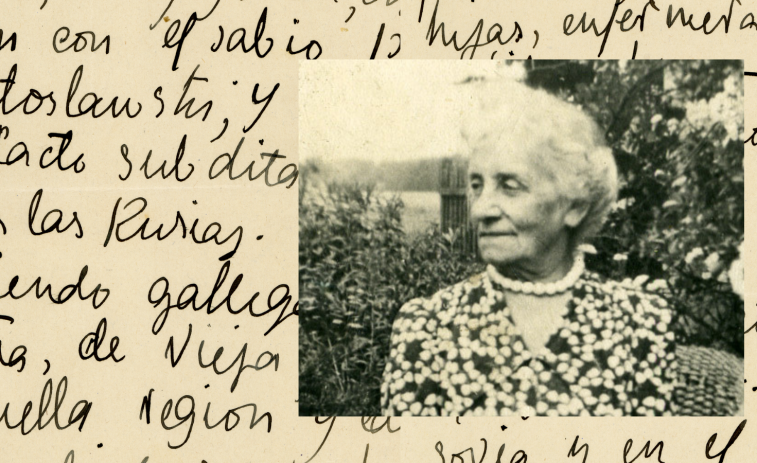 con el sabio hijas, enfermera
toslawski, y
acto subdita
las Rusias.
iendo gallega
de vieja
uella region y la
sovia y en el